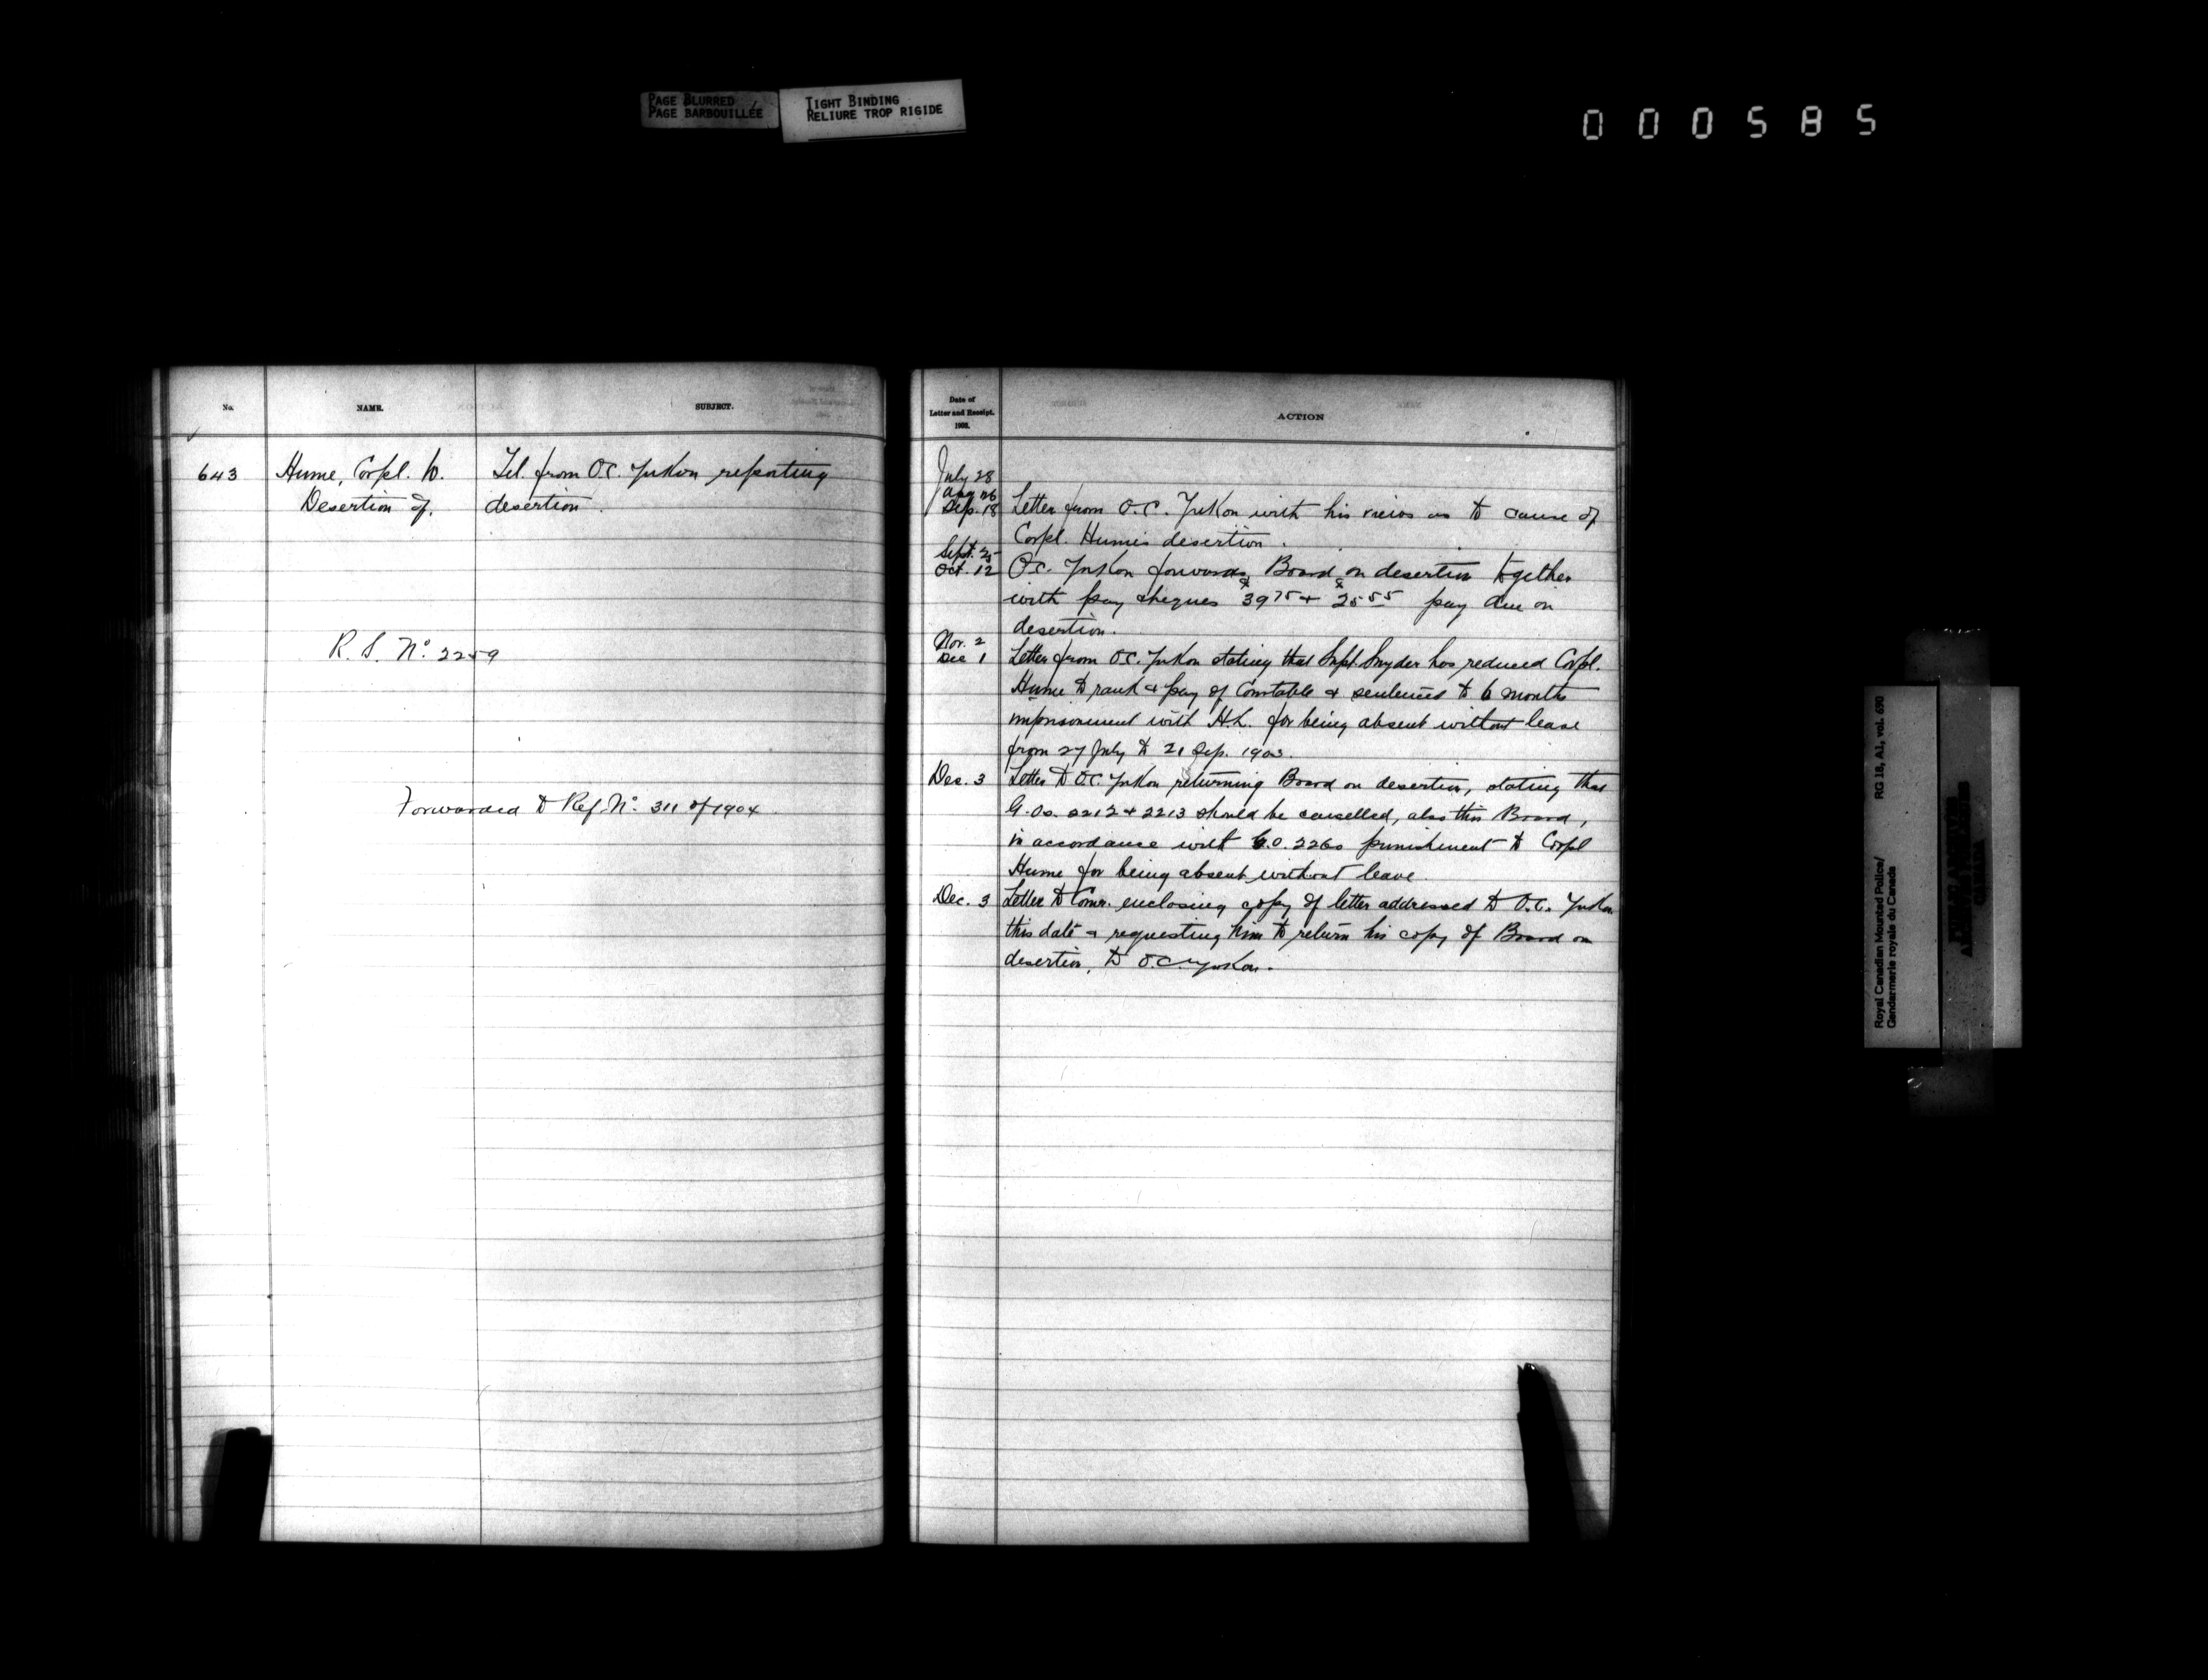 PAGE BLURRED
PAGE BARBOUILLÉE
TIGHT BINDING
RELIURE TROP RIGIDE
000585
No.
NAME.
SUBJECT.
643
Hume, Corpl. W.
Desertion of.
Tel. from O.C. Yukon reporting
desertion.
R. S. No. 2259
Forwarded to Ref. No. 311 of 1904
Date of
Letter and Receipt.
1903.
ACTION
July 28
Aug 26
Sep. 18
Letter from O.C. Yukon with his views as to cause of
Corpl. Hume's desertion.
Sept. 25
Oct. 12
O.C. Yukon forwards Board on desertion together
with pay cheques $39 75 + $25 55 pay due on
desertion.
Nov. 2
Dec 1
Letter from O.C. Yukon stating that Supt. Snyder has reduced Corpl.
Hume to rank & pay of Constable & sentenced to 6 months
imprisonment with H.L. for being absent without leave
from 27 July to 21 Sep. 1903.
Dec. 3
Letter to O.C. Yukon returning Board on desertion, stating that
G.Os. 2212 + 2213 should be cancelled, also this Board,
in accordance with G.O. 2260 punishment to Corpl
Hume for being absent without leave.
Dec. 3
Letter to Comr. enclosing copy of letter addressed to O.C. Yukon
this date & requesting him to return his copy of Board on
desertion, to O.C. Yukon.
Royal Canadian Mounted Police/
Gendarmerie royale du Canada
RG 18, A1, vol. 690